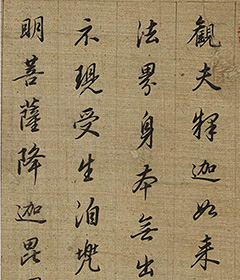 觀夫釋迦如来
法界身本無出
示現受生洎兠
明菩薩降迦毘